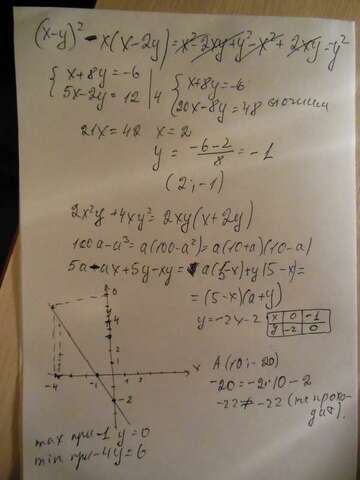 (x-y)² - x(x-2y) = x²-2xy+y²-x²+2xy=y²
{ x+8y=-6
5x-2y=12 | 4
{ x+8y=-6
20x-8y=48 сложим
21x=42 x=2
y = (-6-2)/8 = -1
(2;-1)
2x²y+4xy²=2xy(x+2y)
100a-a³=a(100-a²)=a(10+a)(10-a)
5a-ax+5y-xy= a(5-x)+y(5-x)=
=(5-x)(a+y)
y=-2x-2
x 0 -1
y -2 0
6
-4 -1
x
-2
A(10;-20)
-20=-2·10-2
-22≠-22 (не прохо-
дит).
max при -1 y=0
min при -4 y=6